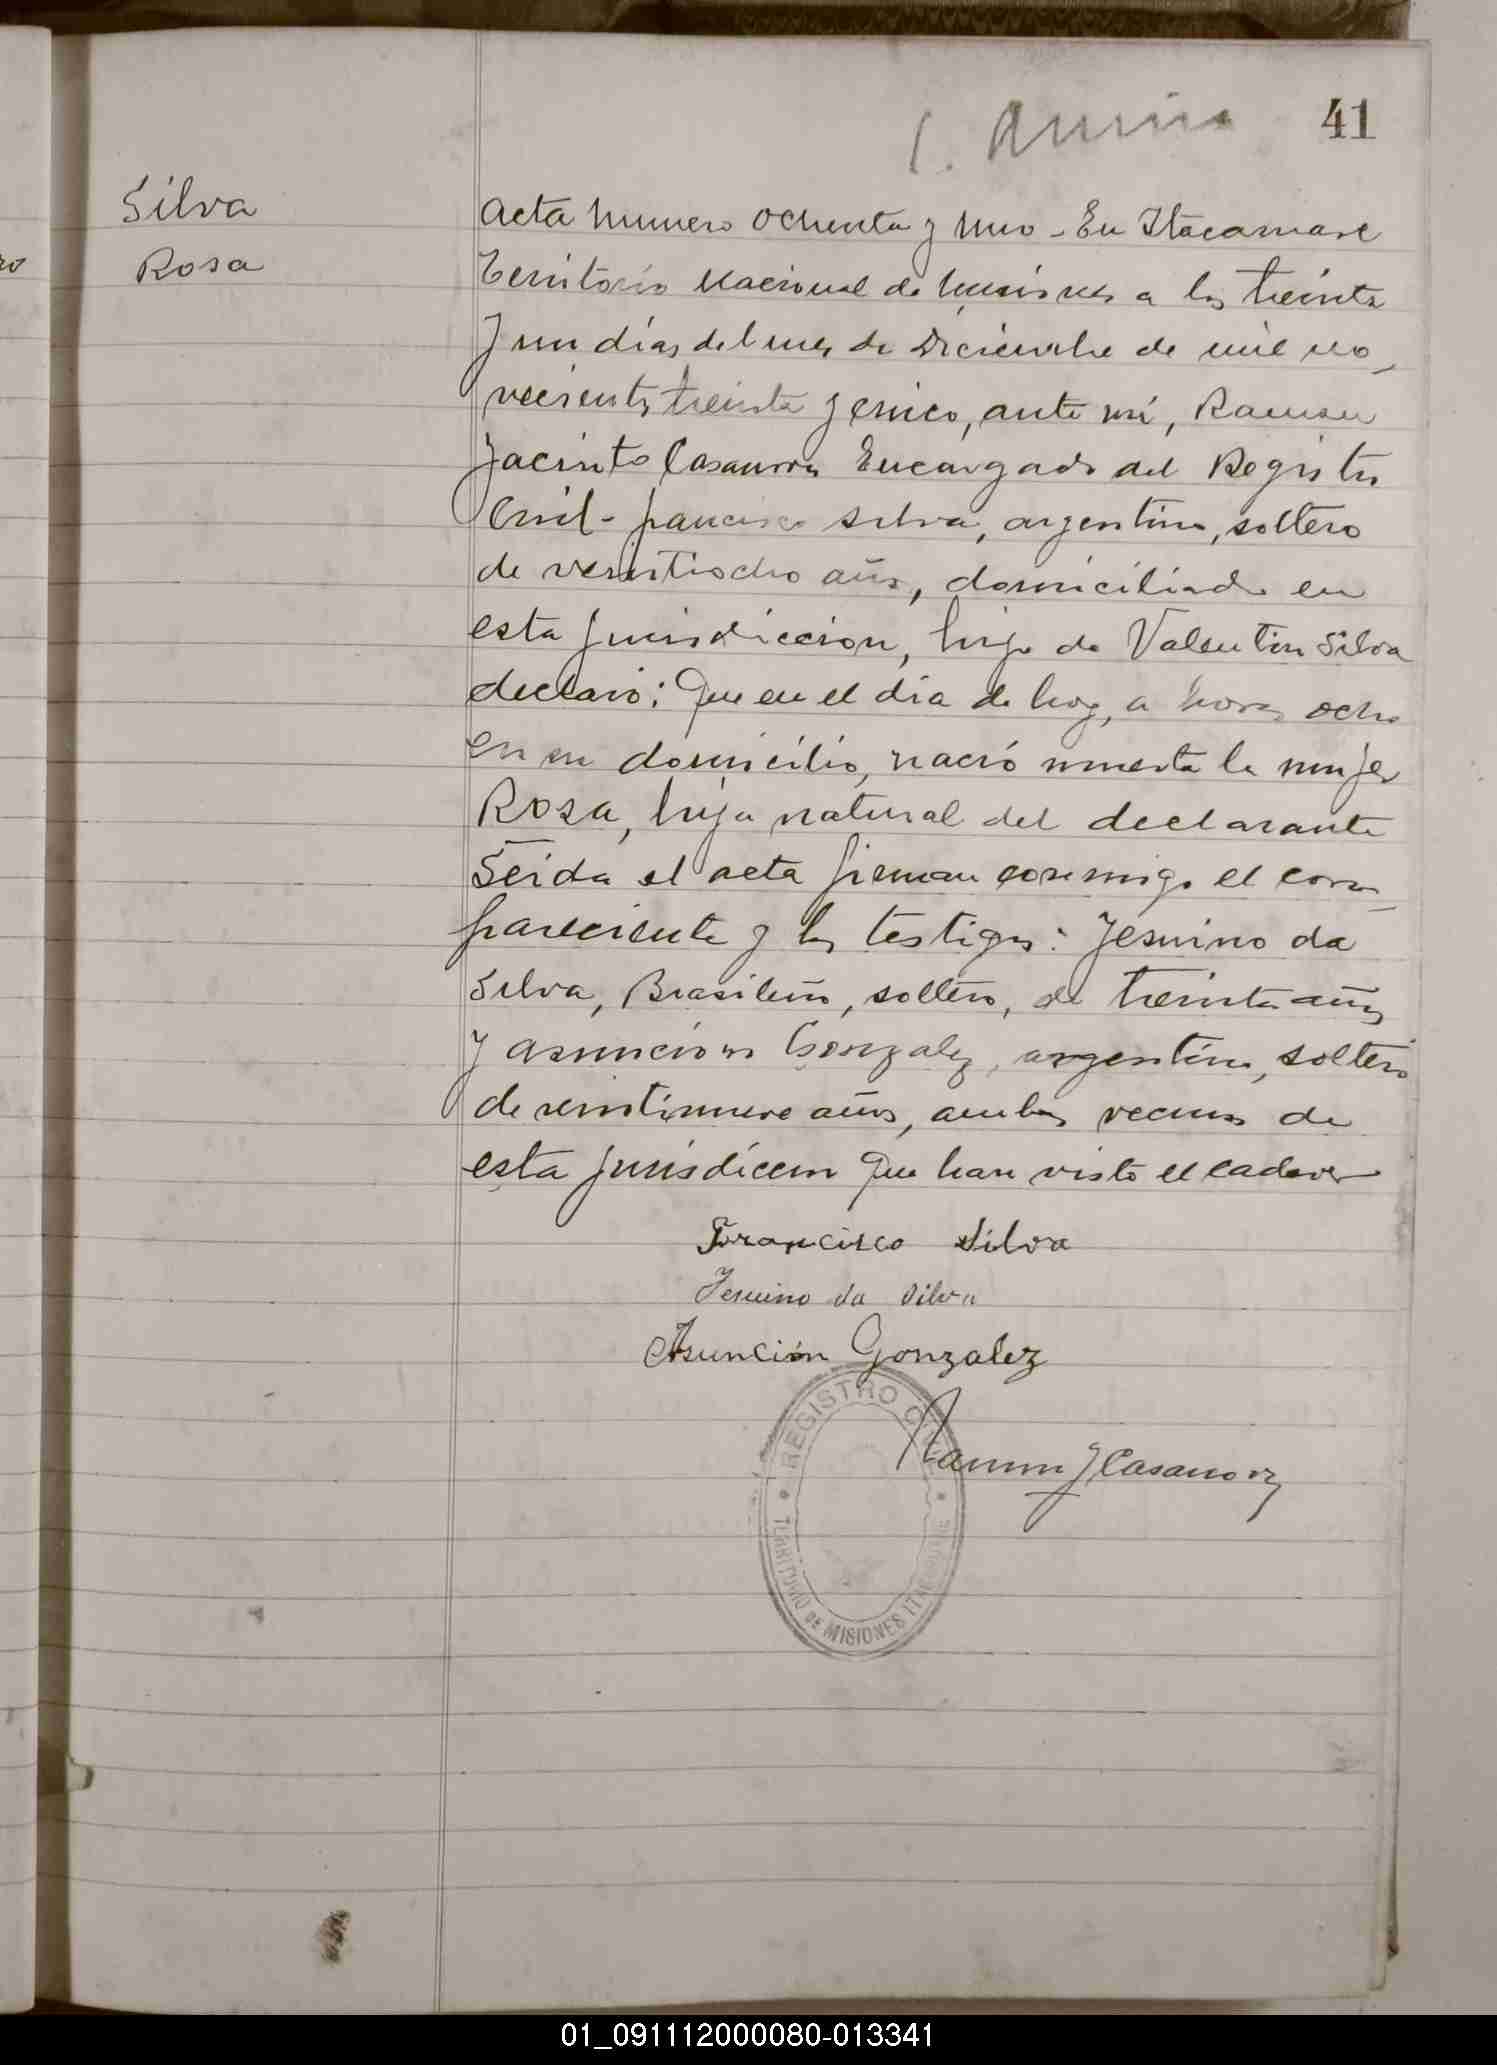 41
Silva
Rosa
Acta numero ochenta y uno - En Itacaruare
Territorio Nacional de Misiones a los treinta
y un dias del mes de Diciembre de mil no-
vecientos treinta y cinco, ante mi, Ramon
Jacinto Casanova Encargado del Registro
Civil - Francisco Silva, argentino, soltero
de veintiocho años, domiciliado en
esta jurisdiccion, hijo de Valentin Silva
declaró: Que en el dia de hoy, a horas ocho
en su domicilio, nació muerta la mujer
Rosa, hija natural del declarante
Leida el acta firman conmigo el com-
pareciente y los testigos: Jesuino da
Silva, Brasileño, soltero, de treinta años
y Asuncion Gonzalez, argentino, soltero
de veintinueve años, ambos vecinos de
esta jurisdiccion que han visto el cadaver
Francisco Silva
Jesuino da Silva
Asunción Gonzalez
Ramon J Casanova
REGISTRO CIVIL
TERRITORIO DE MISIONES ITACARUARE
01_091112000080-013341